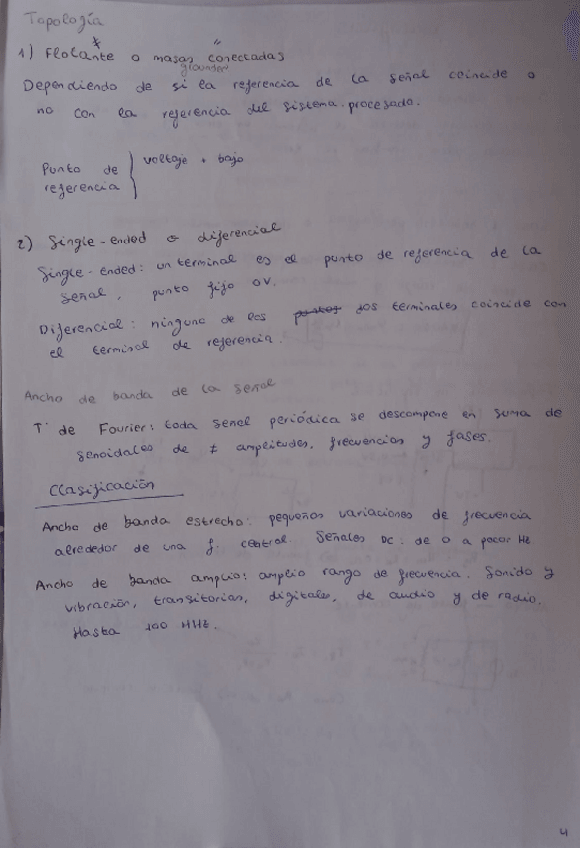 Topología
1) Flotante * o masas conectadas "
grounded
Dependiendo de si la referencia de la señal coincide o
no con la referencia del sistema procesado.
Punto de referencia } voltaje + bajo
2) Single-ended o diferencial
Single-ended: un terminal es el punto de referencia de la
señal, punto fijo 0V.
Diferencial: ninguno de los dos terminales coincide con
el terminal de referencia.
Ancho de banda de la señal
T' de Fourier: toda señal periódica se descompone en suma de
senoidales de ≠ amplitudes, frecuencias y fases.
Clasificación
Ancho de banda estrecho: pequeños variaciones de frecuencia
alrededor de una f. central. Señales DC: de 0 a pocos Hz
Ancho de banda amplio: amplio rango de frecuencia. Sonido y
vibración, transitorias, digitales, de audio y de radio.
Hasta 100 MHz.
4